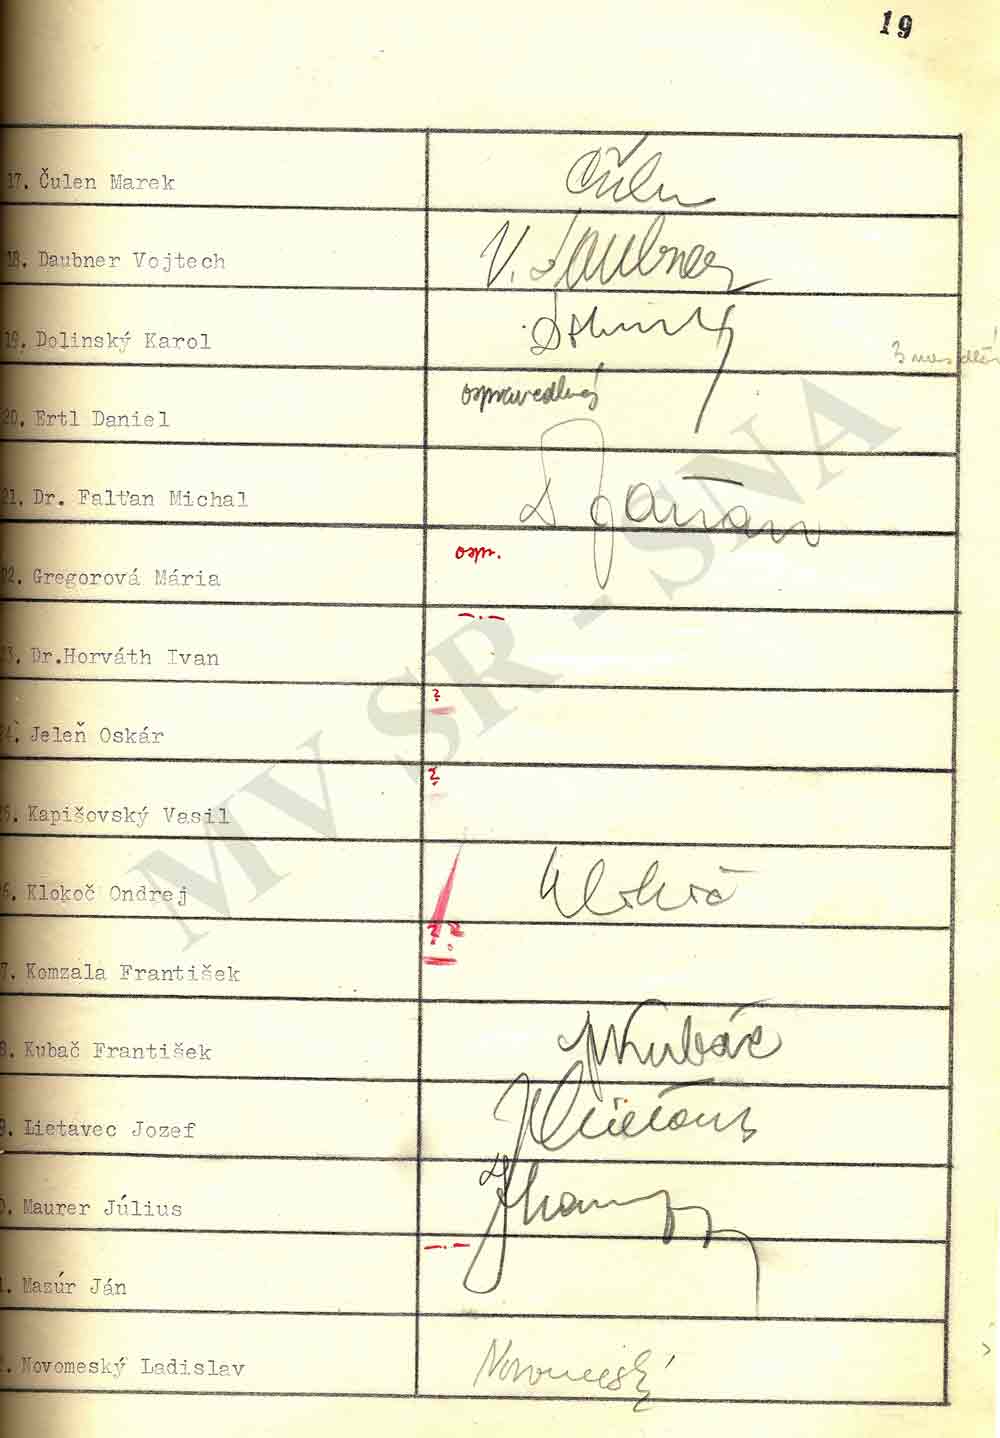 19
17. Čulen Marek Čulen
18. Daubner Vojtech V. Daubner
19. Dolinský Karol Dolinský
20. Ertl Daniel ospravedlnený
21. Dr. Falťan Michal Falťan
22. Gregorová Mária ospr.
23. Dr.Horváth Ivan —.—
24. Jeleň Oskár ?
25. Kapišovský Vasil ?
26. Klokoč Ondrej Klokoč
27. Komzala František ? ?
28. Kubač František Kubač
29. Lietavec Jozef
30. Maurer Július
31. Mazúr Ján —.—
32. Novomeský Ladislav Novomeský
MV SR - SNA